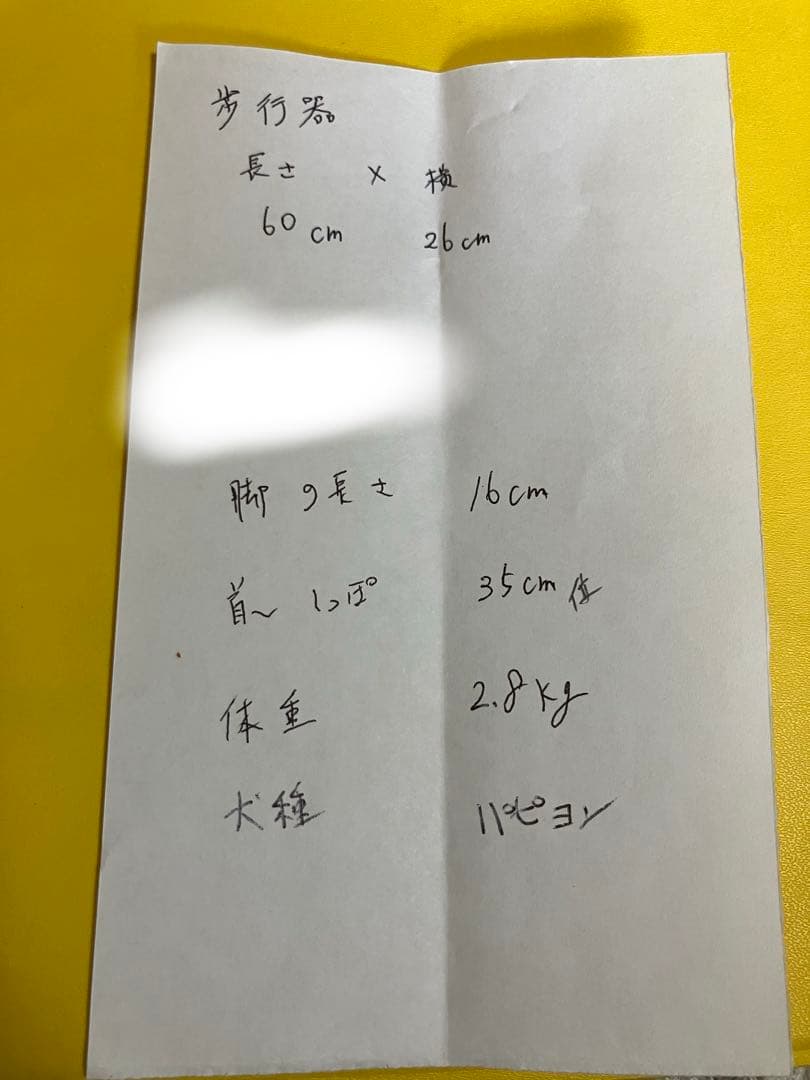 歩行器
長さ × 横
60cm 26cm
脚の長さ 16cm
首〜しっぽ 35cm位
体重 2.8kg
犬種 パピヨン